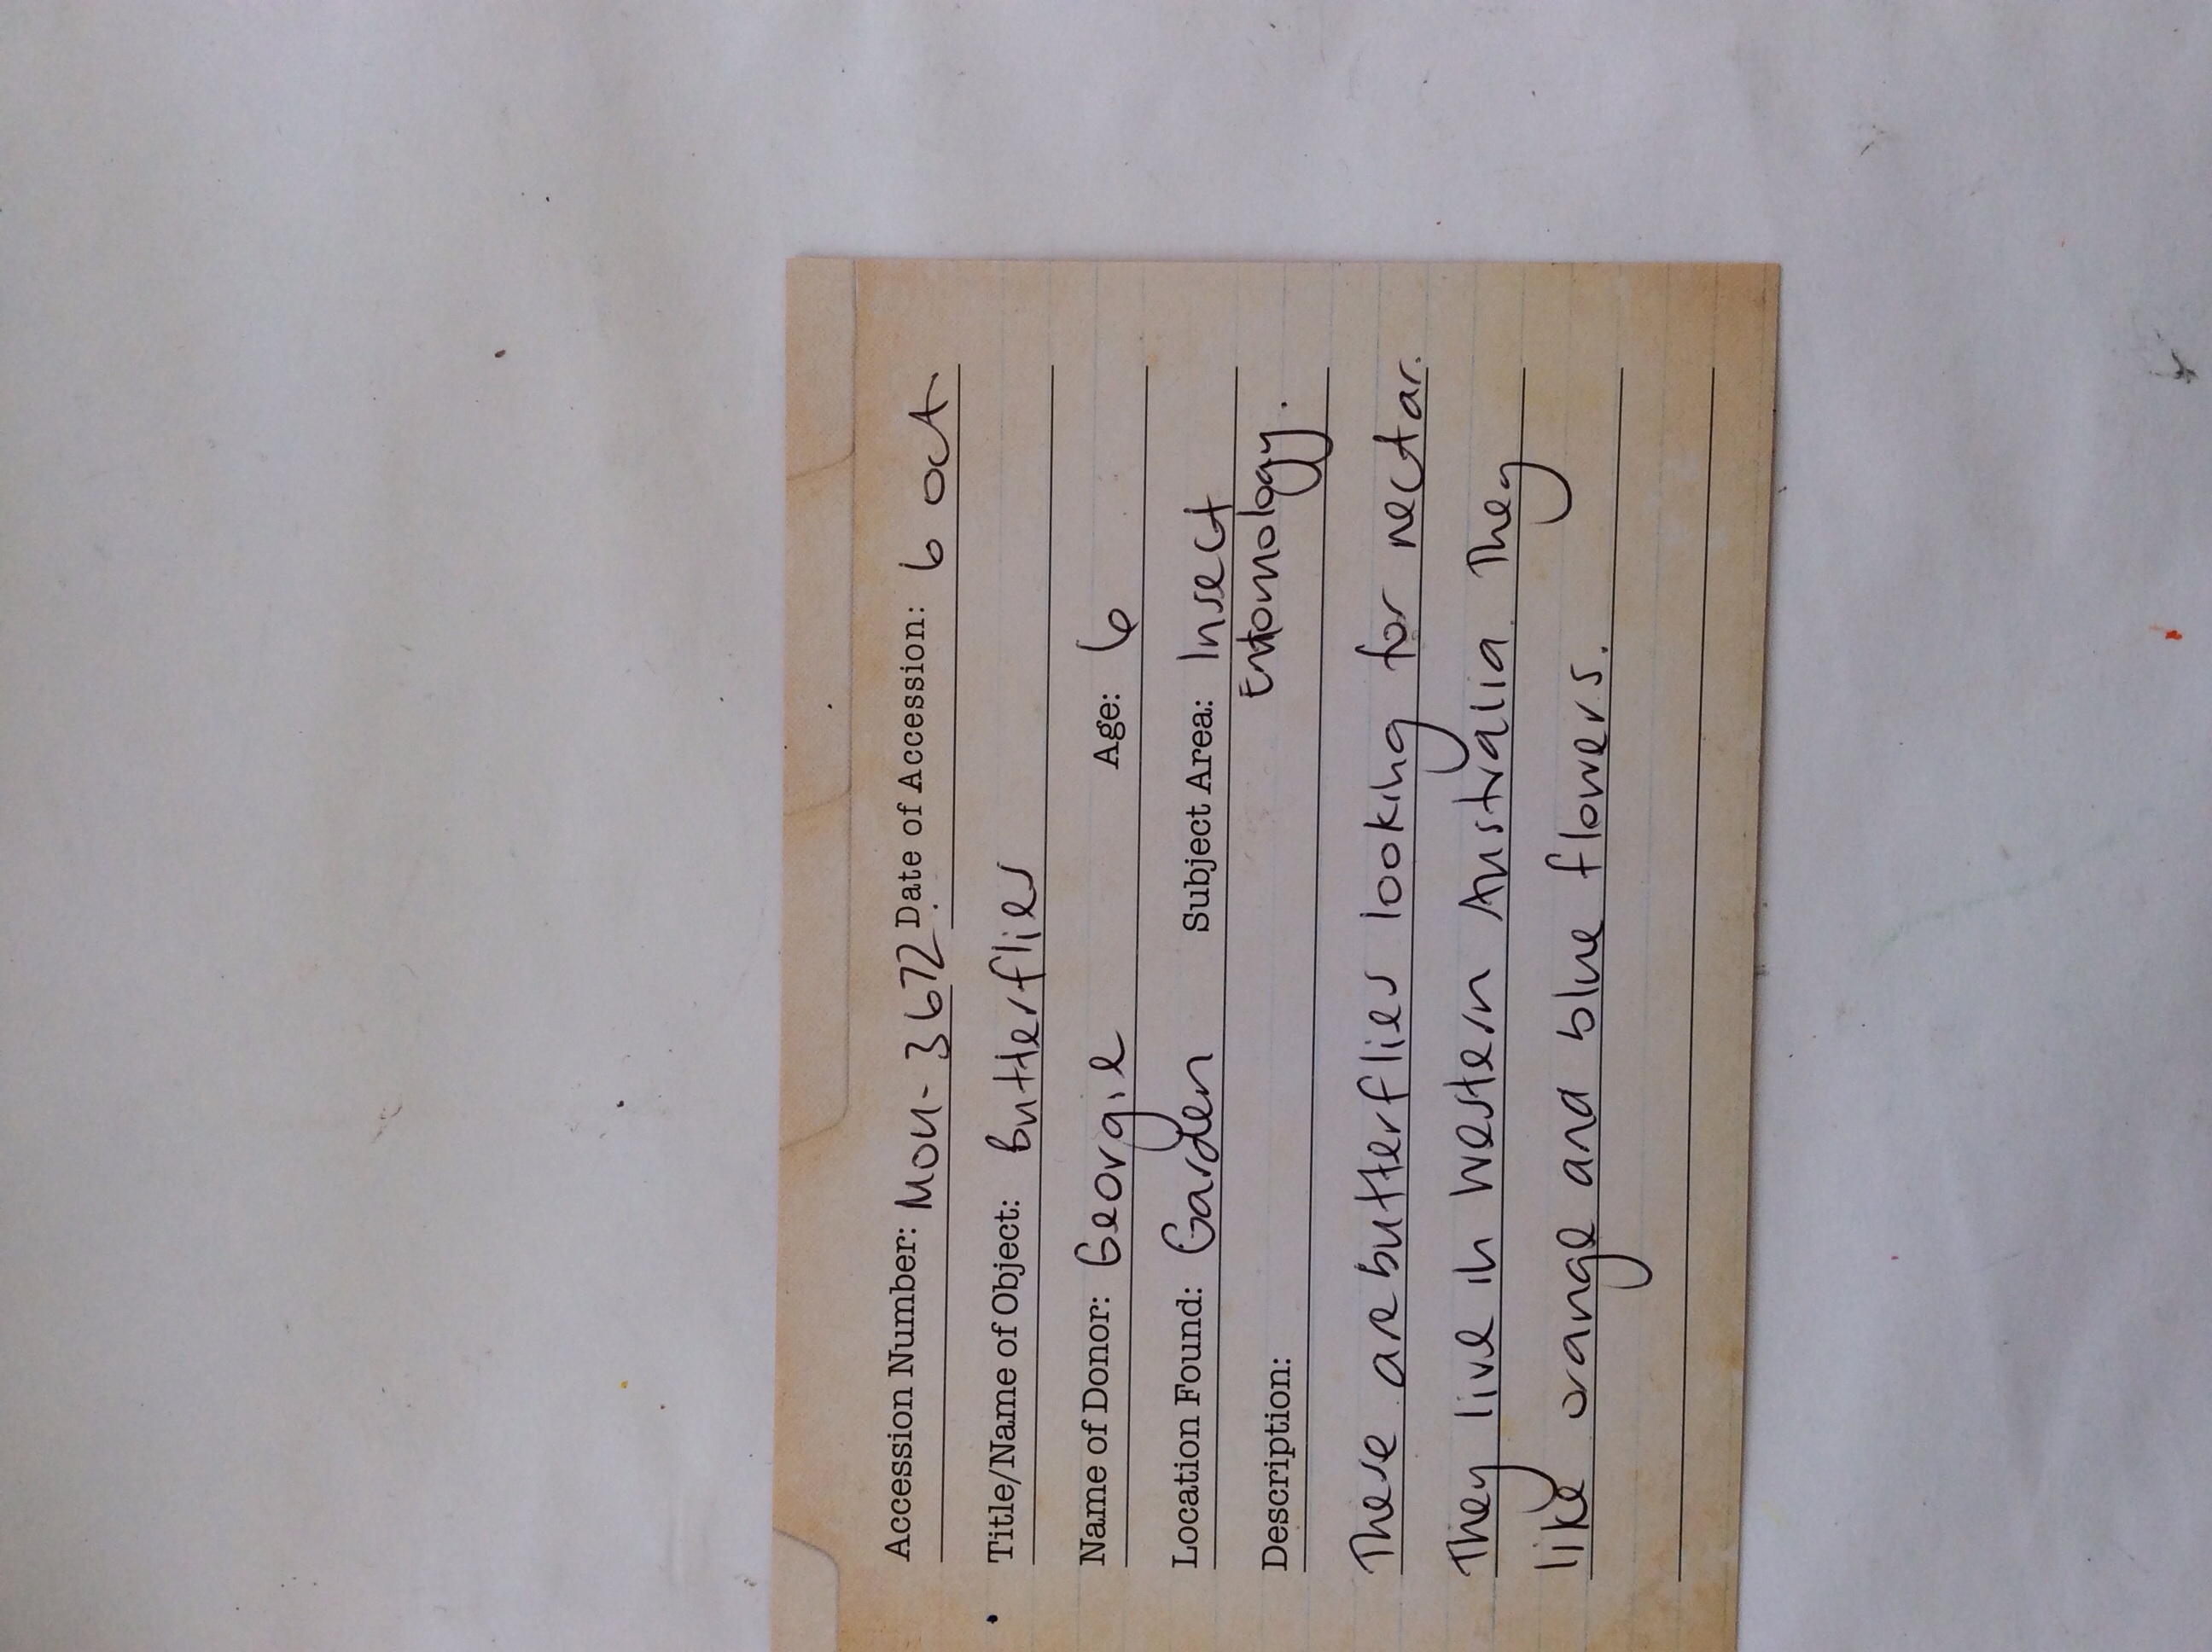 Accession Number: MOU-3672 Date of Accession: 6 Oct
Title/Name of Object: Butterflies
Name of Donor: Georgie Age: 6
Location Found: Garden Subject Area: Insect
Entomology.
Description:
These are butterflies looking for nectar.
They live in Western Australia. They
like orange and blue flowers.